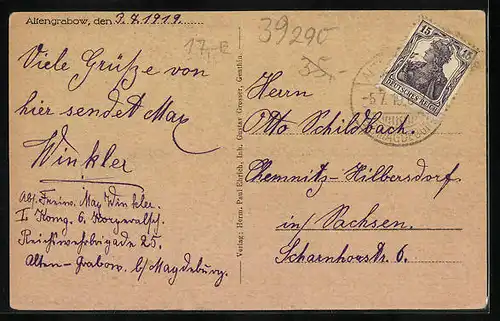 Altengrabow, den 3.7.1919.
Viele Grüße von
hier sendet Max
Winkler
Abs. Freiw. Max Winkler.
I Komg. 6. Korporalsch.
Reichswehrbrigade 25.
Alten-Grabow. b/Magdeburg.
Verlag: Herm. Paul Ehrich, Inh. Gustav Grosser, Genthin
17.-
39290
35.-
15 15
DEUTSCHES REICH
Herrn
Otto Schildbach.
Chemnitz-Hilbersdorf
in Sachsen.
Scharnhorststr. 6.